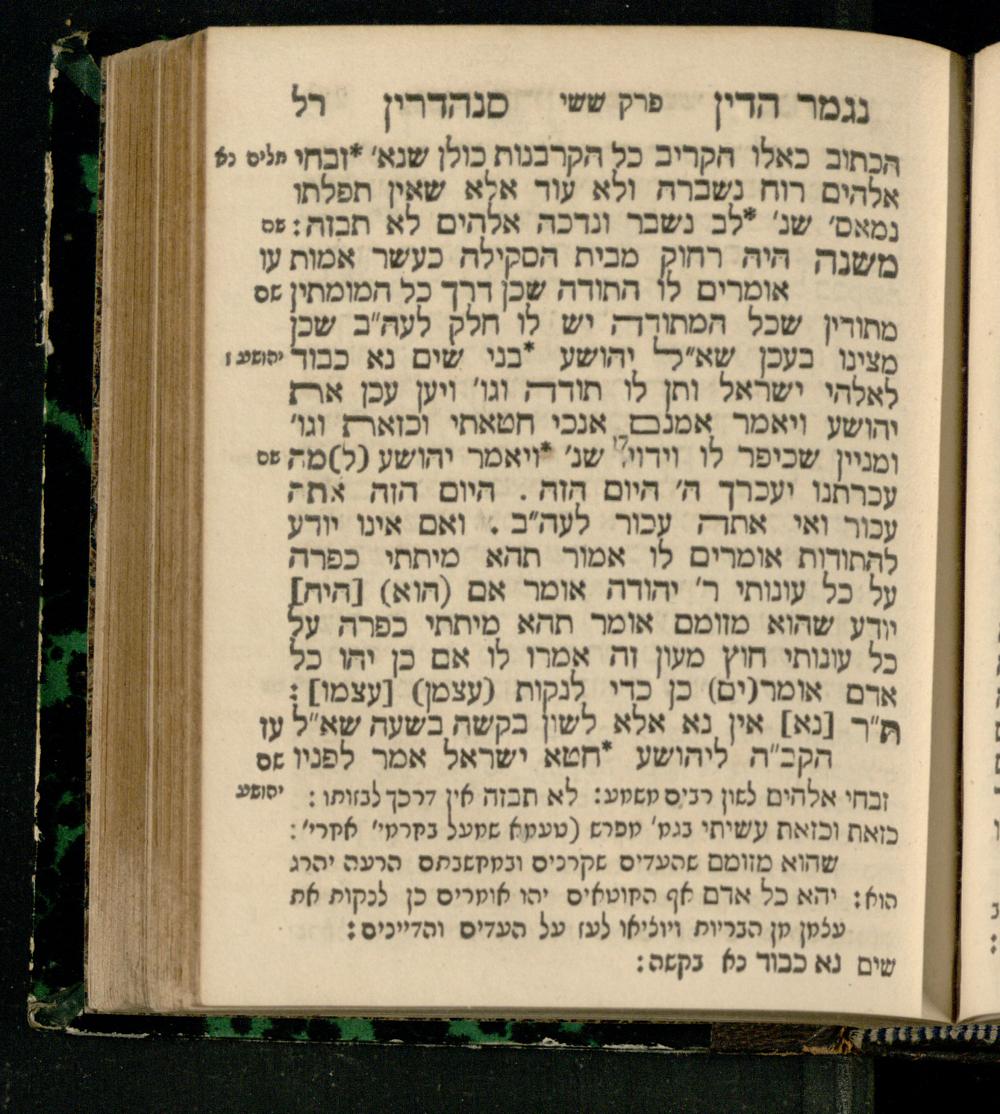 נגמר הדין פרק ששי סנהדרין רל
הכתוב כאלו הקריב כל הקרבנות כולן שנא׳ *זבחי תלים נא
אלהים רוח נשברה ולא עוד אלא שאין תפלתו
נמאס׳ שנ׳ *לב נשבר ונדכה אלהים לא תבזה: שם
משנה היה רחוק מבית הסקילה כעשר אמות עו
אומרים לו התודה שכן דרך כל המומתין שם
מתודין שכל המתודה יש לו חלק לעה״ב שכן
מצינו בעכן שא״ל יהושע *בני שים נא כבוד יהושע ז
לאלהי ישראל ותן לו תודה וגו׳ ויען עכן את
יהושע ויאמר אמנם אנכי חטאתי וכזאת וגו׳
ומניין שכיפר לו וידוי שנ׳ *ויאמר יהושע (ל)מה שם
עכרתנו יעכרך ה׳ היום הזה . היום הזה אתה
עכור ואי אתה עכור לעה״ב . ואם אינו יודע
להתודות אומרים לו אמור תהא מיתתי כפרה
על כל עונותי ר׳ יהודה אומר אם (הוא) [היה]
יודע שהוא מזומם אומר תהא מיתתי כפרה על
כל עונותי חוץ מעון זה אמרו לו אם כן יהו כל
אדם אומר(ים) כן כדי לנקות (עצמן) [עצמו]:
ת״ר [נא] אין נא אלא לשון בקשה בשעה שא״ל עז
הקב״ה ליהושע *חטא ישראל אמר לפניו שם
זבחי אלהים לשון רבים משמע: לא תבזה אין דרכך לבזותו: יהושע
כזאת וכזאת עשיתי בגמ׳ מפרש (טעמא שמעל בקרמי׳ אקרי׳:
שהוא מזומם שהעדים שקרנים ובמחשבתם הרעה יהרג
הוא: יהא כל אדם אף החוטאים יהו אומרים כן לנקות את
עצמן מן הבריות ויוציאו לעז על העדים והדיינים:
שים נא כבוד נא בקשה: